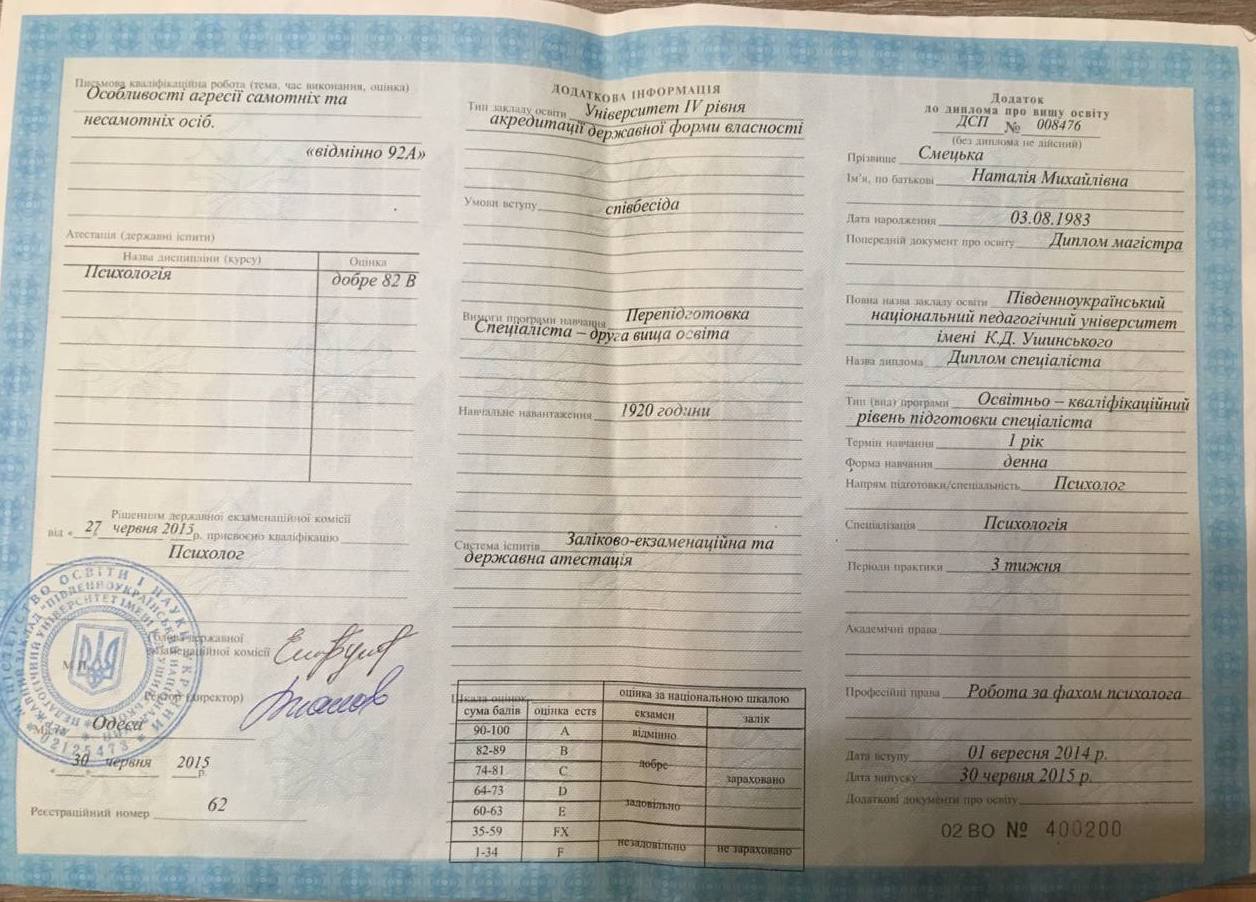 Письмова кваліфікаційна робота (тема, час виконання, оцінка)
Особливості агресії самотніх та
несамотніх осіб.
«відмінно 92А»
Атестація (державні іспити)
Назва дисципліни (курсу) Оцінка
Психологія добре 82 В
Рішенням державної екзаменаційної комісії
від « 27 червня 2015 р. присвоєно кваліфікацію
Психолог
Голова державної
екзаменаційної комісії
М.П.
Ректор (директор)
Місто Одеса
« 30 » червня 2015 р.
Реєстраційний номер 62
02125473
ДОДАТКОВА ІНФОРМАЦІЯ
Тип закладу освіти Університет IV рівня
акредитації державної форми власності
Умови вступу співбесіда
Вимоги програми навчання Перепідготовка
Спеціаліста – друга вища освіта
Навчальне навантаження 1920 години
Система іспитів Заліково-екзаменаційна та
державна атестація
Шкала оцінок оцінка за національною шкалою
сума балів оцінка ects екзамен залік
90-100 A відмінно
82-89 B добре
74-81 C зараховано
64-73 D задовільно
60-63 E
35-59 FX незадовільно не зараховано
1-34 F
Додаток
до диплома про вищу освіту
ДСП № 008476
(без диплома не дійсний)
Прізвище Смецька
Ім'я, по батькові Наталія Михайлівна
Дата народження 03.08.1983
Попередній документ про освіту Диплом магістра
Повна назва закладу освіти Південноукраїнський
національний педагогічний університет
імені К.Д. Ушинського
Назва диплома Диплом спеціаліста
Тип (вид) програми Освітньо – кваліфікаційний
рівень підготовки спеціаліста
Термін навчання 1 рік
Форма навчання денна
Напрям підготовки/спеціальність Психолог
Спеціалізація Психологія
Періоди практики 3 тижня
Академічні права
Професійні права Робота за фахом психолога
Дата вступу 01 вересня 2014 р.
Дата випуску 30 червня 2015 р.
Додаткові документи про освіту
02 ВО № 400200